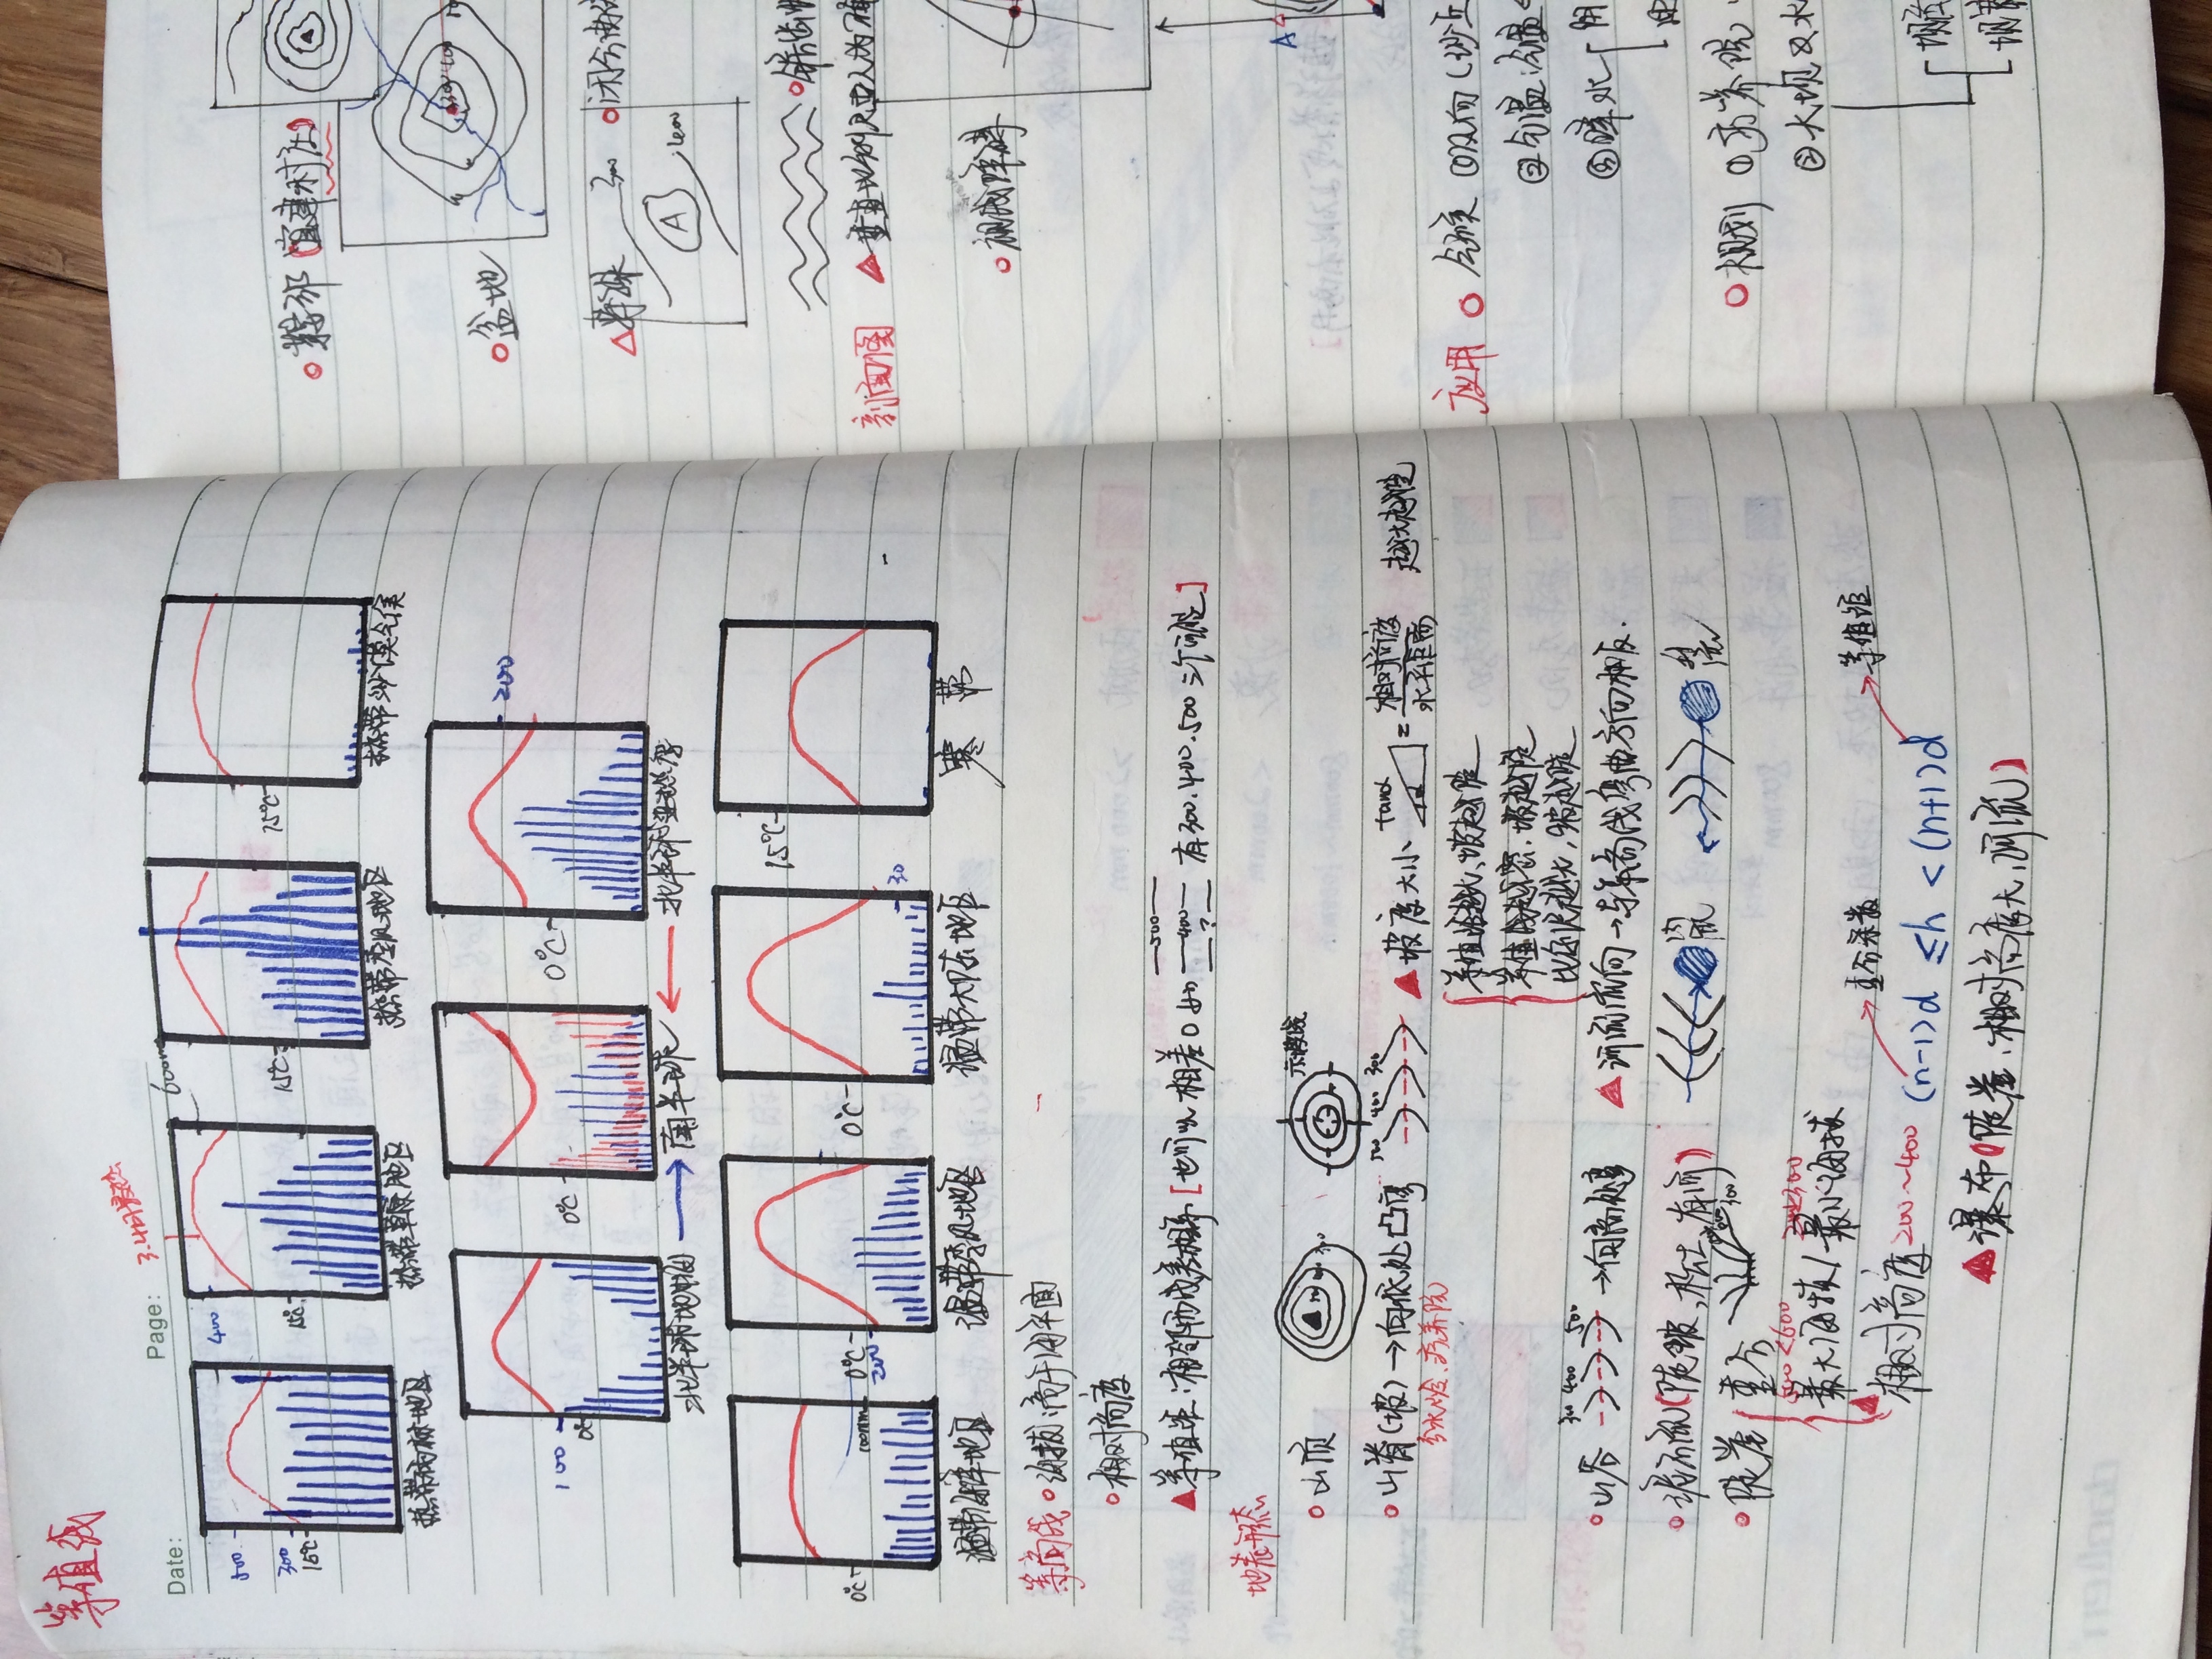 等值线
Date:
Page:
3.4月最热
500
300
15℃
热带雨林地区
400
15℃
热带草原地区
600mm
15℃
热带季风地区
15℃
热带沙漠气候
100
0℃
北半球地中海
0℃
南半球
0℃
200
北半球亚热季
0℃
100mm
温带海洋地区
0℃
200
温带季风地区
0℃
30
温带大陆地区
15℃
寒带
等高线 ○海拔:高于海平面
○相对高度
▲等值距:相邻两线差相等[也可以相差0如 —500— —400— —?— 有300.400.500三个可能]
地表形态
○山顶
示坡线
○山脊(坡)→向低处凸弯 500 400 300
分水岭、疗养院
▲坡度大小 tanα α = 相对高度/水平距离 越大越陡
等值距越大、坡越陡
等值线越密、坡越陡
比例尺越大,坡越陡
○山谷 300 400 500 →向高处弯
▲河流流向→与等高线弯曲方向相反.
○泥石流(陡坡,松土,有河)
○陡崖 重合
300
500<600
200 300
最大海拔/最小海拔
▲相对高度 200~400
重合条数
等值距
(n-1)d ≤h <(n+1)d
▲瀑布(陡崖、相对高度大,河流)
○鞍部(宜建村庄)
○盆地
300 400
△特殊
300
A
400
○闭合曲线
○锯齿状
剖面图
▲垂直比例尺
○视线障碍
A
应用 ○气候 ①风向
②气温:气温
③降水
○规划 ①疗养院
②大坝及水